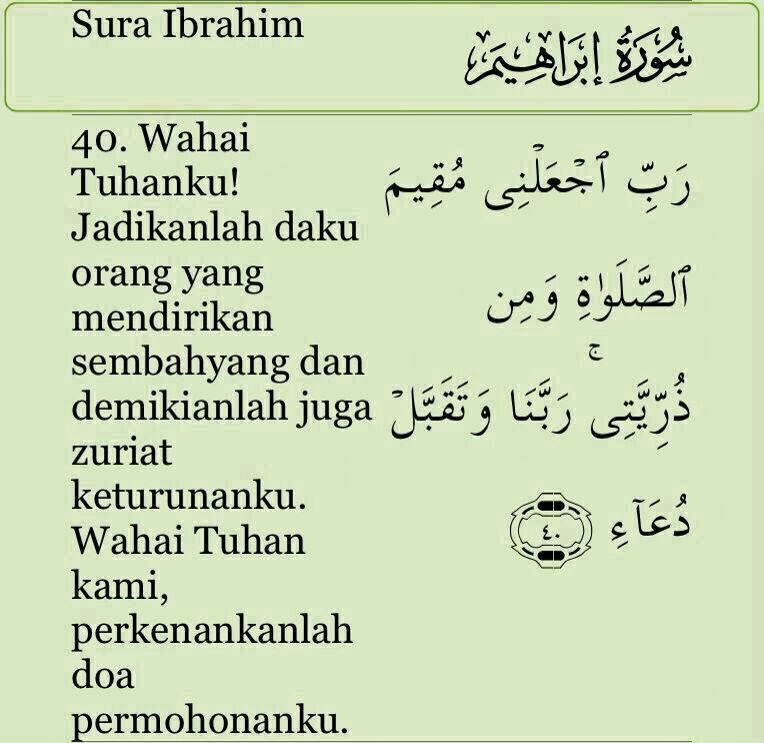 Sura Ibrahim
سُورَةُ إِبْرَاهِيمَ
40. Wahai
Tuhanku!
Jadikanlah daku
orang yang
mendirikan
sembahyang dan
demikianlah juga
zuriat
keturunanku.
Wahai Tuhan
kami,
perkenankanlah
doa
permohonanku.
رَبِّ ٱجْعَلْنِى مُقِيمَ
ٱلصَّلَوٰةِ وَمِن
ذُرِّيَّتِى ۚ رَبَّنَا وَتَقَبَّلْ
دُعَآءِ ٤٠